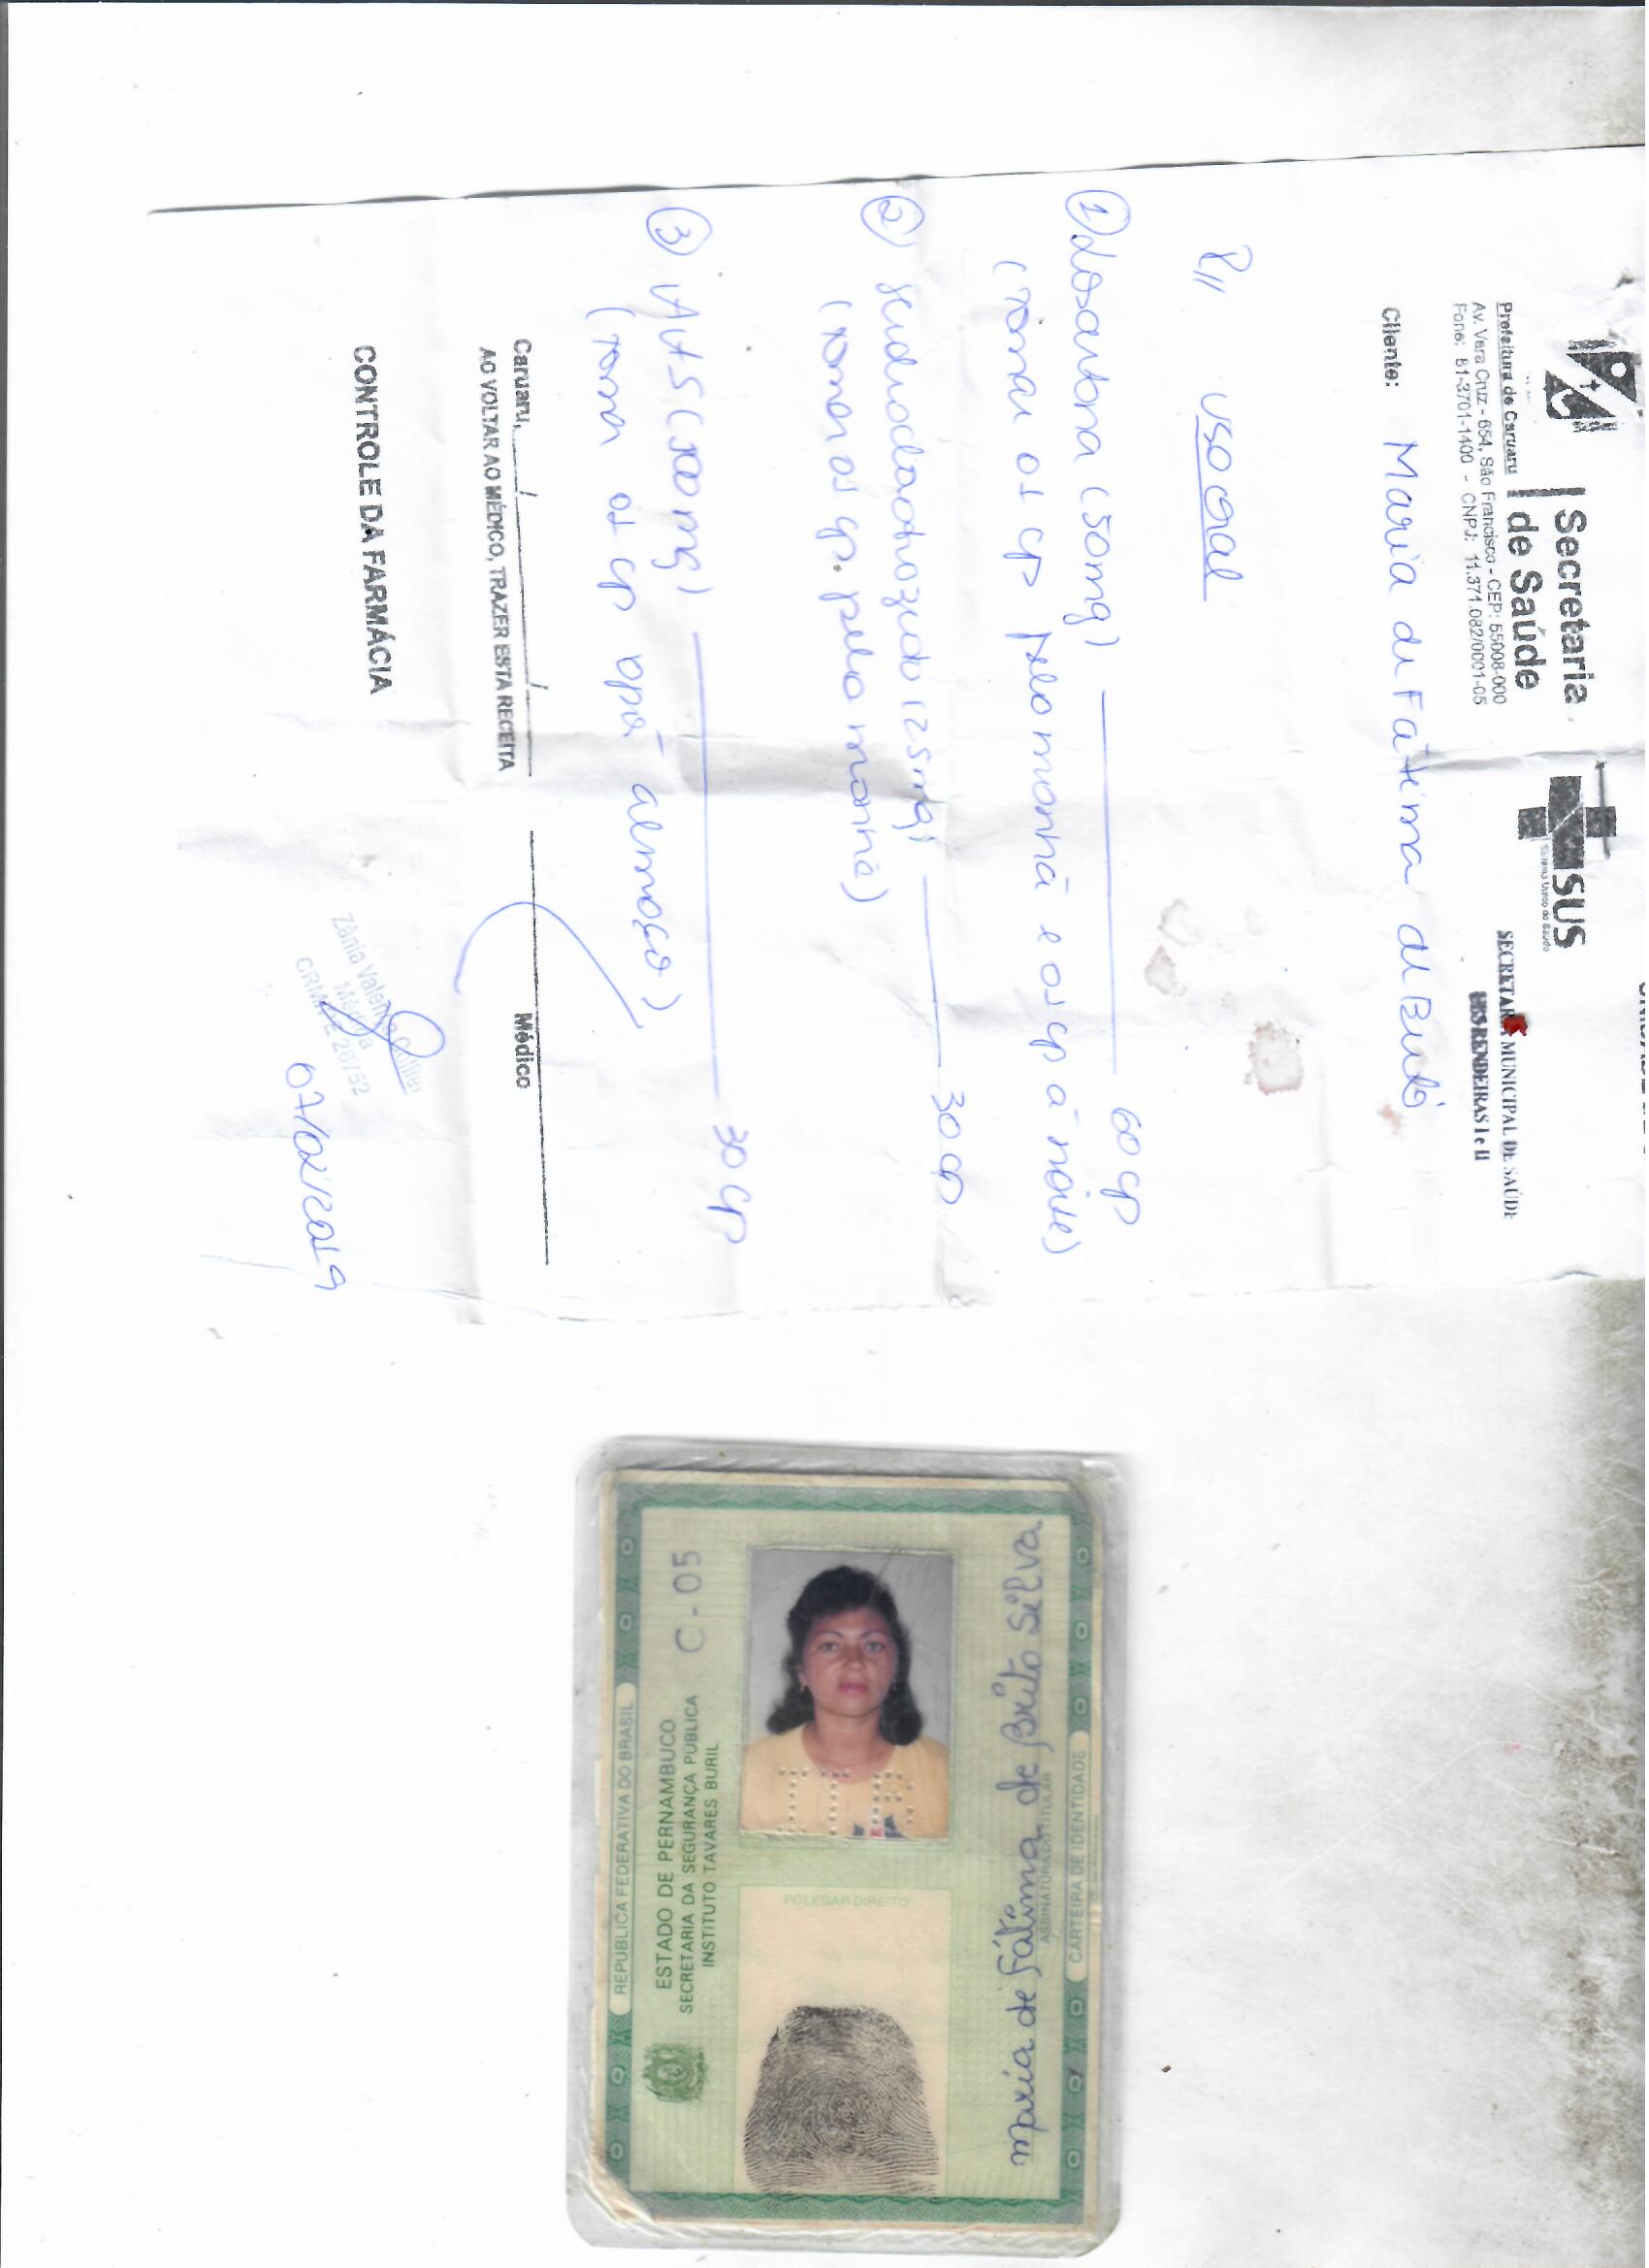 Secretaria
de Saúde
Prefeitura de Caruaru
Av. Vera Cruz - 654, São Francisco - CEP: 55008-000
Fone: 81-3701-1400 - CNPJ: 11.371.082/0001-05
SUS
Sistema Único de Saúde
SECRETARIA MUNICIPAL DE SAÚDE
UBS RENDEIRAS I e II
Cliente: Maria de Fátima de Brito
uso oral
① Losartana (50mg) 60 cp
(tomar 01 cp pela manhã e 01 cp à noite)
② Hidroclorotiazida (25mg) 30 cp
(tomar 01 cp. pela manhã)
③ AAS (100mg) 30 cp
(tomar 01 cp após almoço)
Caruaru, / /
Médico
AO VOLTAR AO MÉDICO, TRAZER ESTA RECEITA
CONTROLE DA FARMÁCIA
Zânia
Médica
07/02/2019
REPÚBLICA FEDERATIVA DO BRASIL
ESTADO DE PERNAMBUCO
SECRETARIA DA SEGURANÇA PÚBLICA
INSTITUTO TAVARES BURIL
C-05
POLEGAR DIREITO
Maria de Fátima de Brito Silva
ASSINATURA DO TITULAR
CARTEIRA DE IDENTIDADE